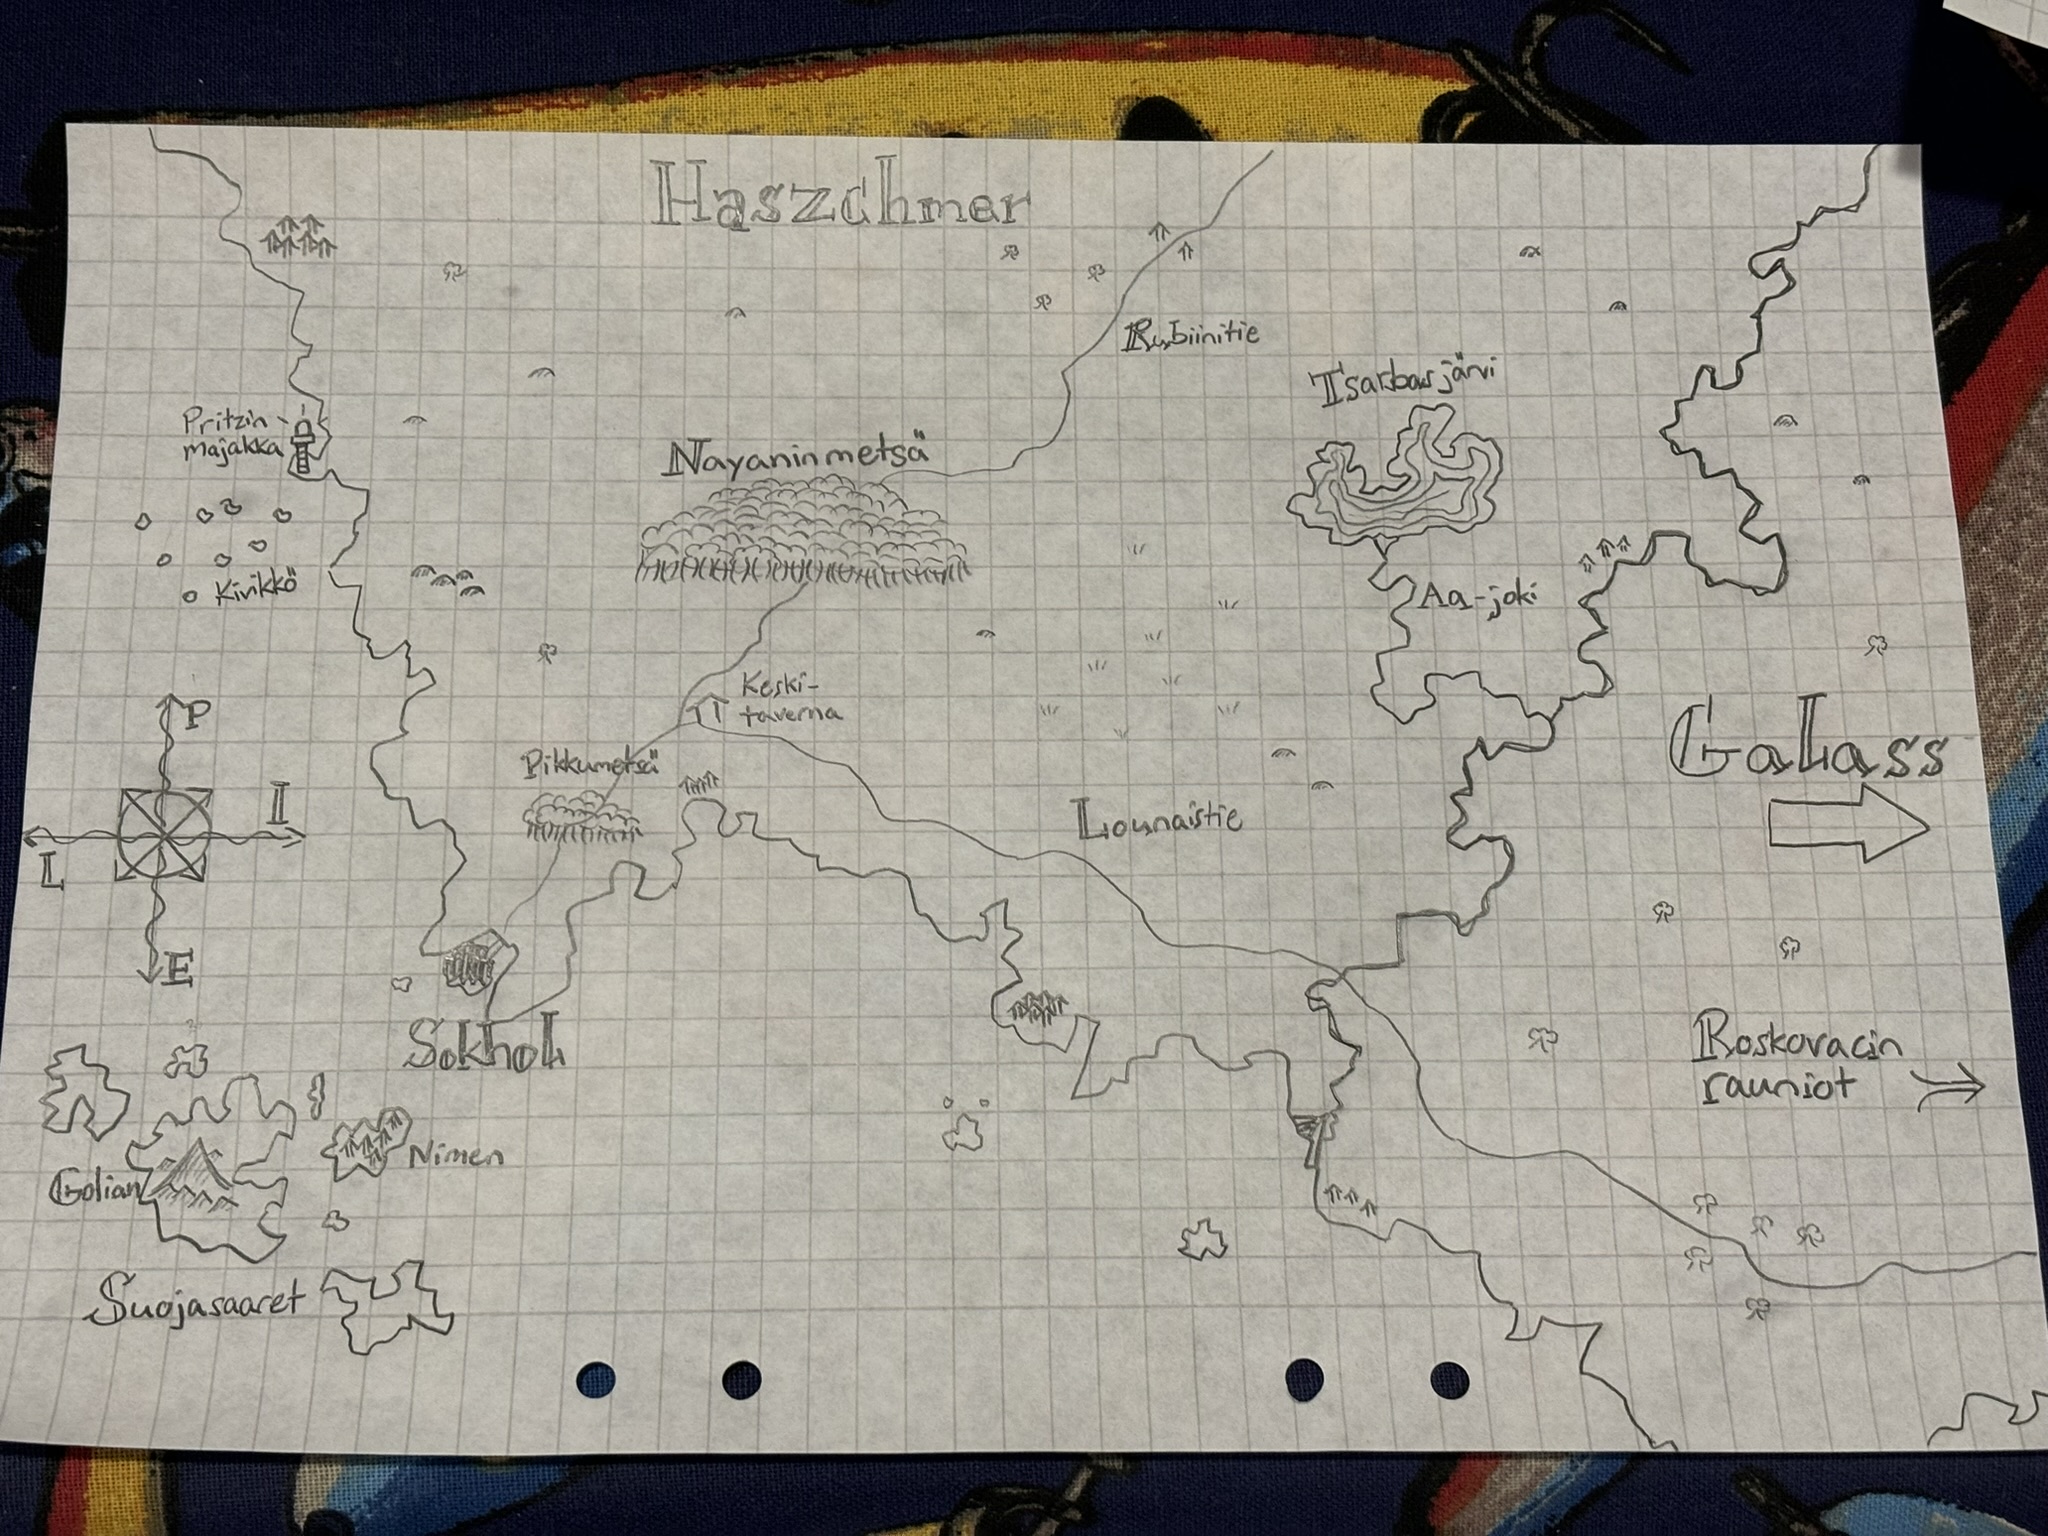 Haszchmer
Rubiinitie
Tsarbasjärvi
Pritzin-
majakka
Nayaninmetsä
Kivikkö
Aa-joki
Keski-
taverna
P
L
I
E
Pikkumetsä
GaLass
Lounaistie
SokhoL
Roskovacin
rauniot
Nimen
Golian
Suojasaaret